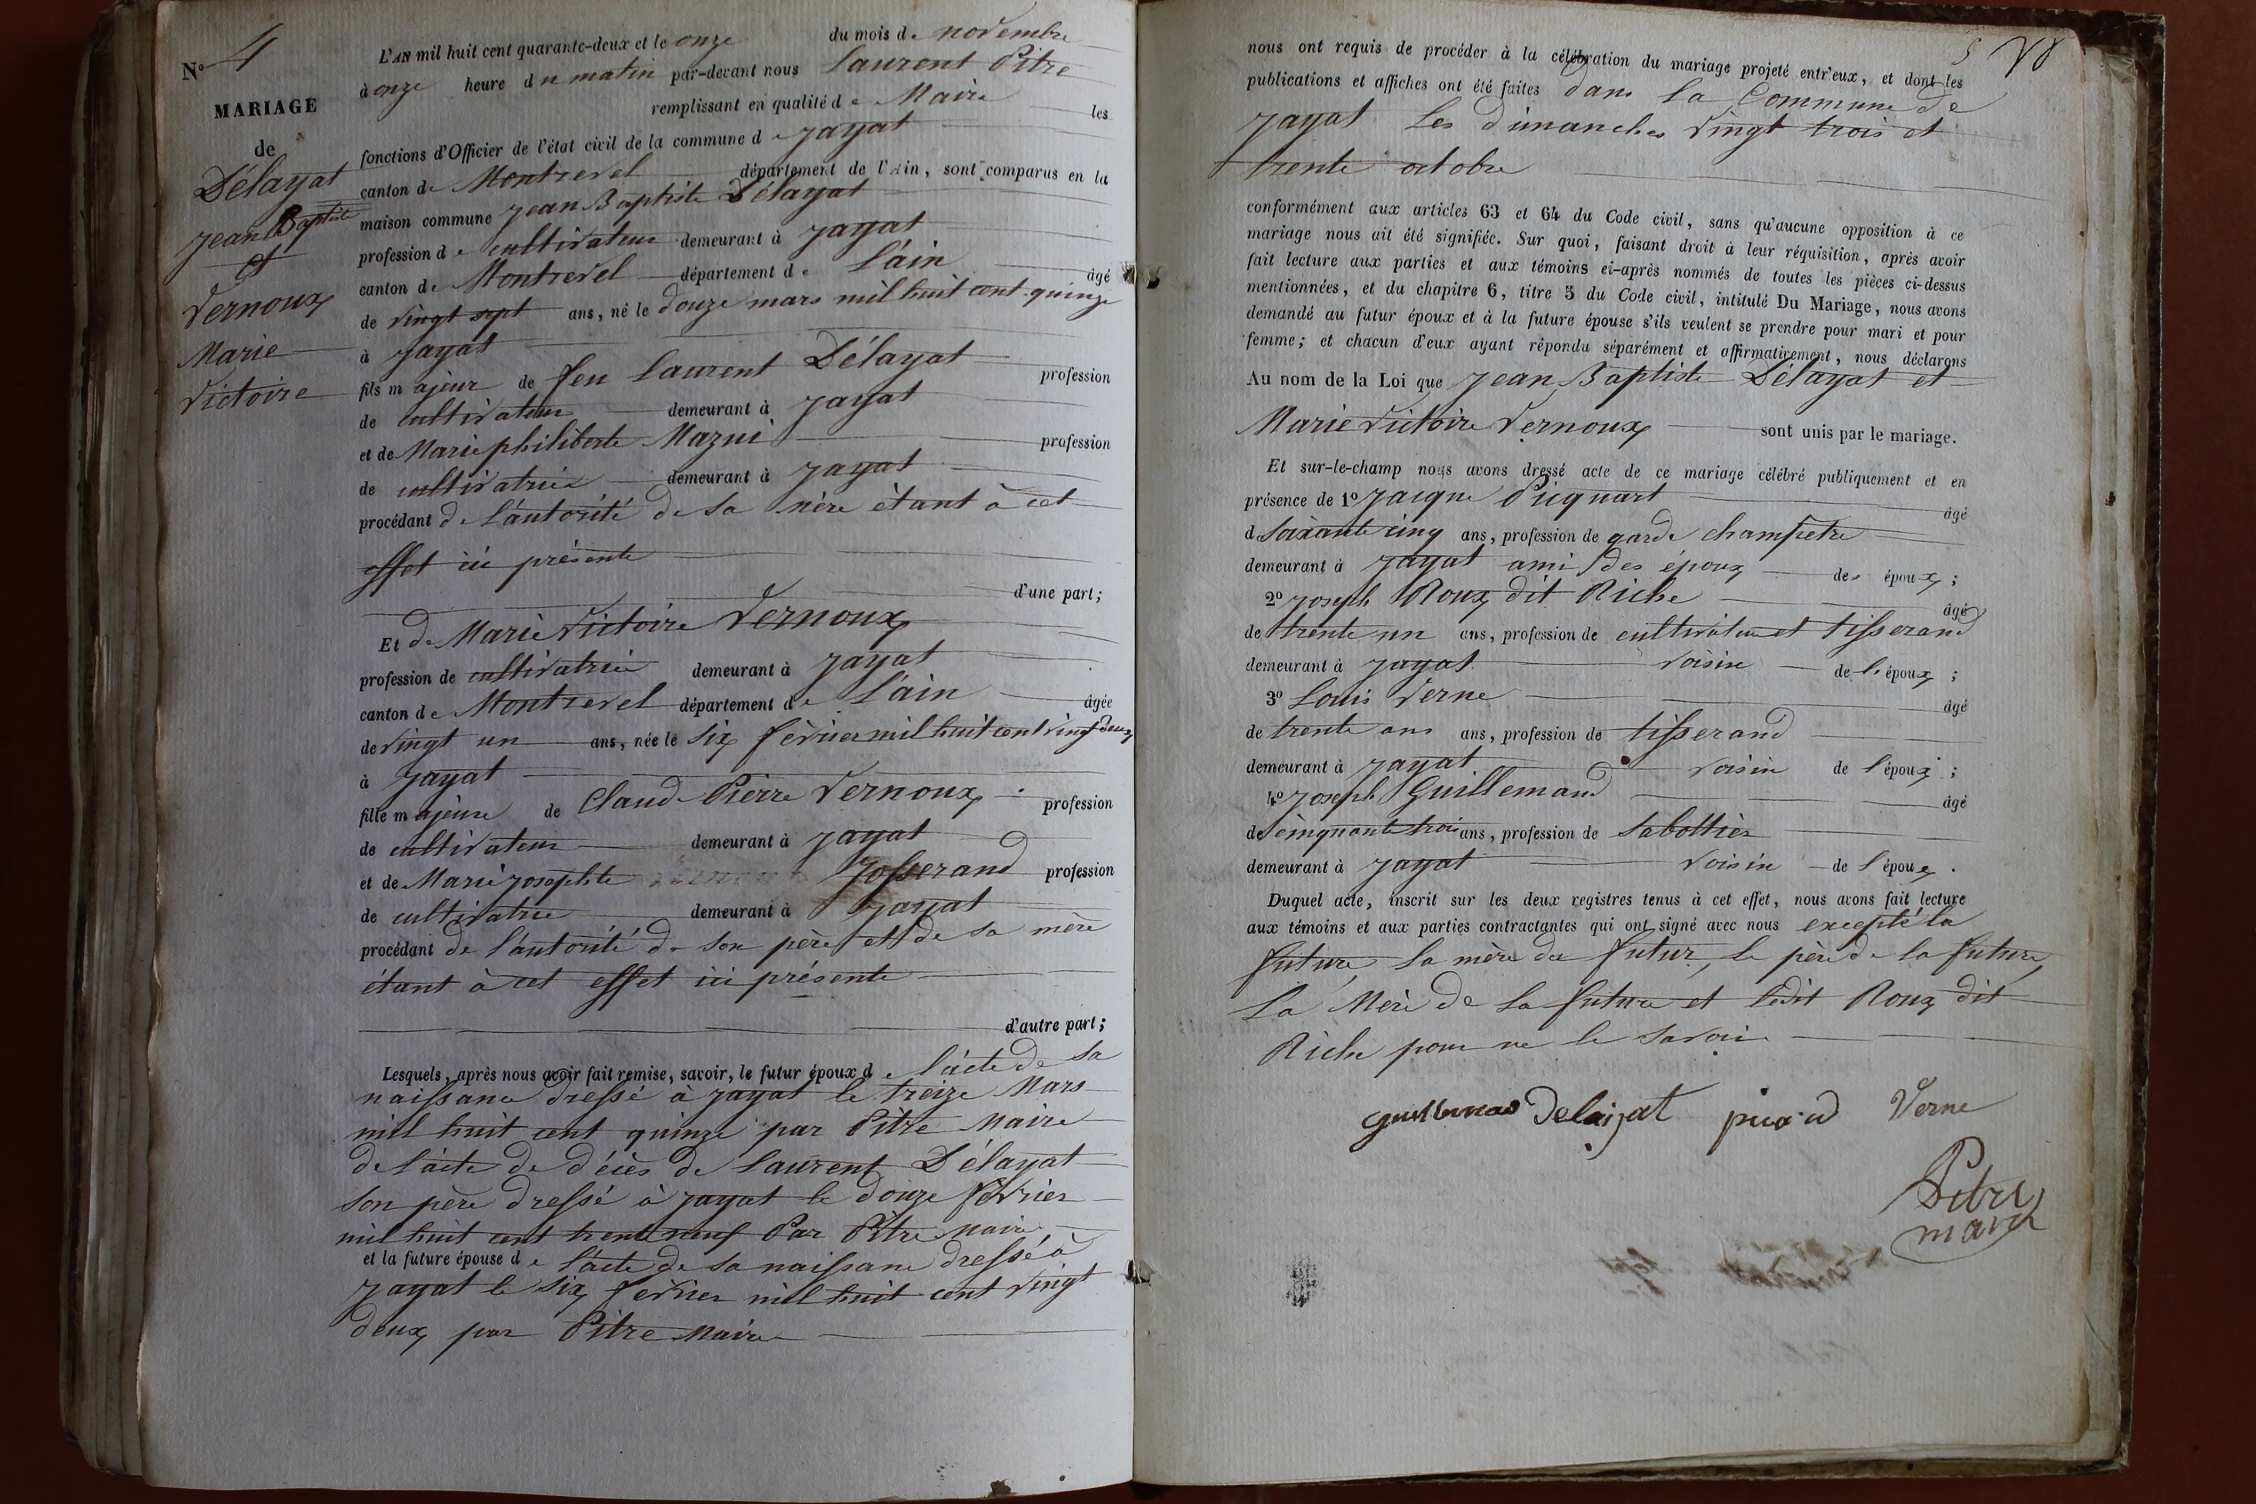 N° 4
MARIAGE
de
Délayat
Jean Baptiste
et
Vernoux
Marie
Victoire
L'AN mil huit cent quarante-deux et le onze du mois de novembre
à onze heure du matin par-devant nous Laurent Pitre
remplissant en qualité de Maire les
fonctions d'Officier de l'état civil de la commune de Jayat
canton de Montrevel département de l'Ain, sont comparus en la
maison commune Jean Baptiste Délayat
profession de cultivateur demeurant à Jayat
canton de Montrevel département de L'ain âgé
de vingt sept ans, né le douze mars mil huit cent quinze
à Jayat
fils majeur de feu Laurent Délayat profession
de cultivateur demeurant à Jayat
et de Marie philiberte Mazui profession
de cultivatrice demeurant à Jayat
procédant de l'autorité de sa mère étant à cet
effet ici présente
d'une part;
Et de Marie Victoire Vernoux
profession de cultivatrice demeurant à Jayat
canton de Montrevel département de L'ain âgée
de vingt un ans, née le six février mil huit cent vingt deux
à Jayat
fille majeure de Claude Pierre Vernoux profession
de cultivateur demeurant à Jayat
et de Marie josephte Josserand profession
de cultivatrice demeurant à Jayat
procédant de l'autorité de son père et de sa mère
étant à cet effet ici présente
d'autre part;
Lesquels, après nous avoir fait remise, savoir, le futur époux de l'acte de sa
naissance dressé à Jayat le treize Mars
mil huit cent quinze par Pitre Maire
de l'acte de décès de Laurent Délayat
son père dressé à Jayat le douze février
mil huit cent trente neuf Par Pitre Maire
et la future épouse de l'acte de sa naissance dressé à
Jayat le six février mil huit cent vingt
deux par Pitre Maire
nous ont requis de procéder à la célébration du mariage projeté entr'eux, et dont les
publications et affiches ont été faites dans la Commune de
Jayat Les dimanches vingt trois et
trente octobre
conformément aux articles 63 et 64 du Code civil, sans qu'aucune opposition à ce
mariage nous ait été signifiée. Sur quoi, faisant droit à leur réquisition, après avoir
fait lecture aux parties et aux témoins ci-après nommés de toutes les pièces ci-dessus
mentionnées, et du chapitre 6, titre 5 du Code civil, intitulé Du Mariage, nous avons
demandé au futur époux et à la future épouse s'ils veulent se prendre pour mari et pour
femme; et chacun d'eux ayant répondu séparément et affirmativement, nous déclarons
Au nom de la Loi que Jean Baptiste Délayat et
Marie Victoire Vernoux sont unis par le mariage.
Et sur-le-champ nous avons dressé acte de ce mariage célébré publiquement et en
présence de 1° Jacque Picquart âgé
de soixante cinq ans, profession de garde champetre
demeurant à Jayat ami des époux des époux;
2° Joseph Roux dit Riche âgé
de trente un ans, profession de cultivateur et tisserand
demeurant à Jayat voisin de l'époux;
3° Louis Verne âgé
de trente ans ans, profession de tisserand
demeurant à Jayat voisin de l'époux;
4° Joseph Guillemaud âgé
de cinquante trois ans, profession de sabottier
demeurant à Jayat voisin de l'époux.
Duquel acte, inscrit sur les deux registres tenus à cet effet, nous avons fait lecture
aux témoins et aux parties contractantes qui ont signé avec nous excepté la
future, la mère du futur, le père de la future,
La Mère de la future et ledit Roux dit
Riche pour ne le savoir
Guillemao Delaiyat Verne
Pitre
maire